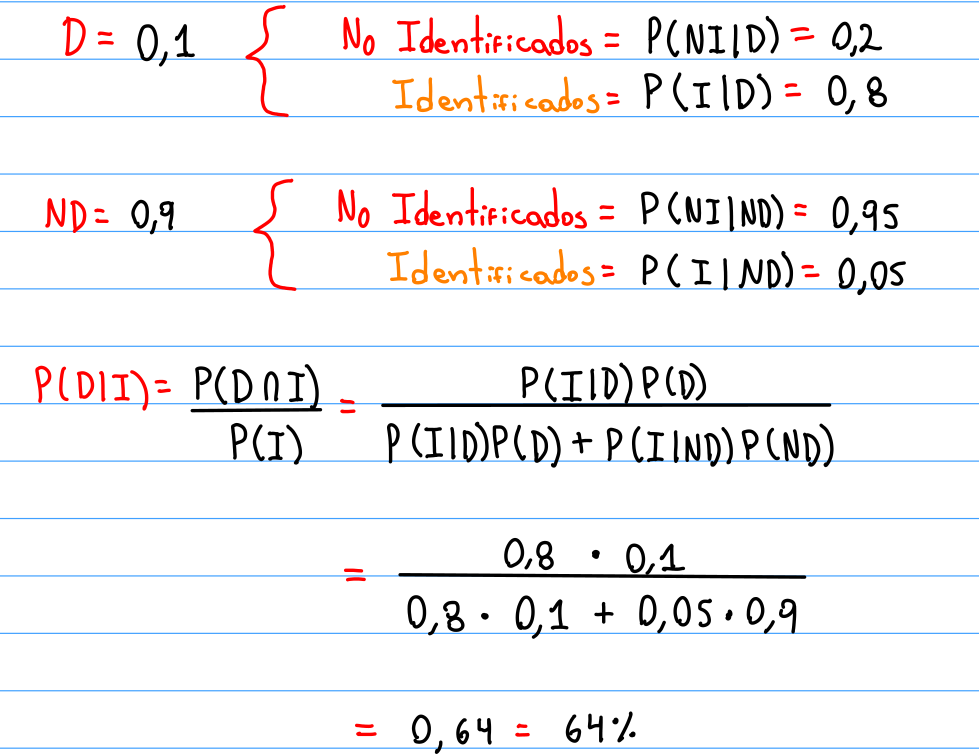 D = 0,1 { No Identificados = P(NI|D) = 0,2
Identificados = P(I|D) = 0,8
ND = 0,9 { No Identificados = P(NI|ND) = 0,95
Identificados = P(I|ND) = 0,05
P(D|I) = P(D∩I) / P(I) = P(I|D)P(D) / P(I|D)P(D) + P(I|ND)P(ND)
= 0,8 · 0,1 / 0,8 · 0,1 + 0,05 · 0,9
= 0,64 = 64%